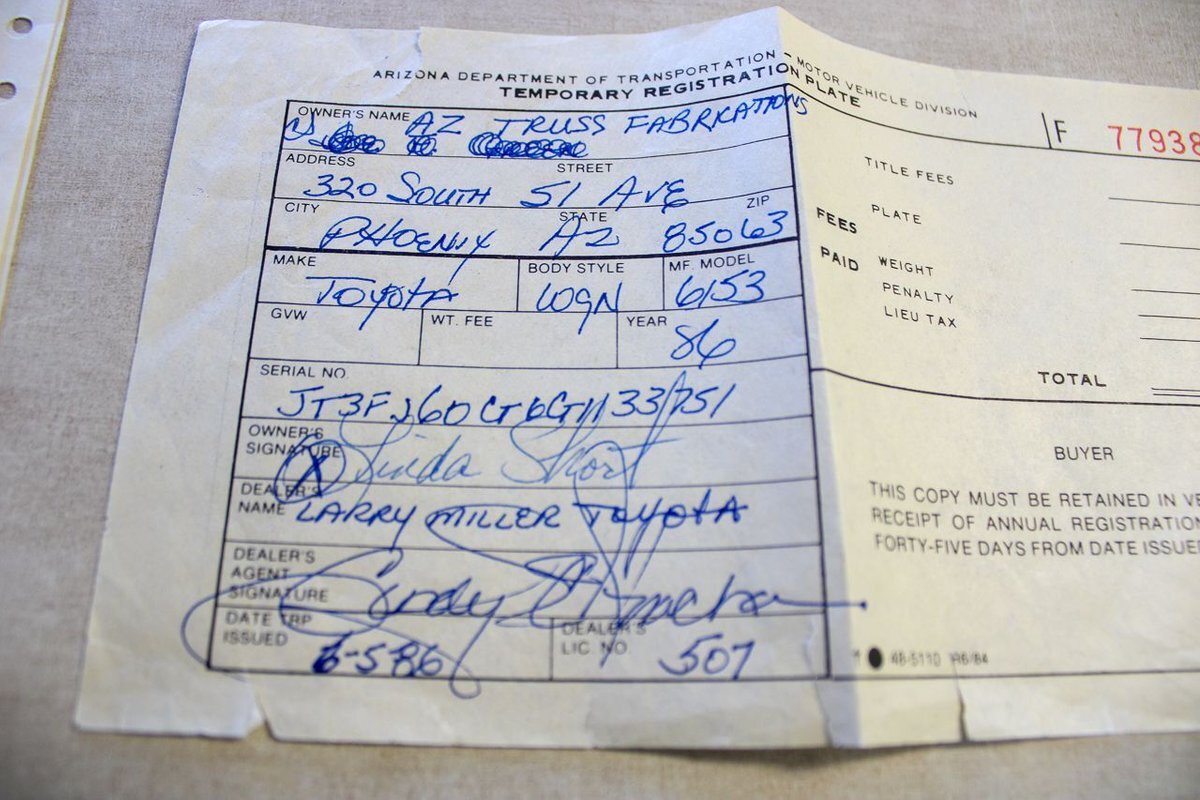 ARIZONA DEPARTMENT OF TRANSPORTATION - MOTOR VEHICLE DIVISION
TEMPORARY REGISTRATION PLATE
OWNER'S NAME AZ TRUSS FABRICATIONS
ADDRESS STREET
320 SOUTH 51 AVE
CITY STATE ZIP
PHOENIX AZ 85063
MAKE BODY STYLE MF. MODEL
TOYOTA WGN 6153
GVW WT. FEE YEAR
86
SERIAL NO.
OWNER'S
SIGNATURE X Linda Short
DEALER'S
NAME LARRY MILLER TOYOTA
DEALER'S
AGENT
SIGNATURE Cindy
DATE TRP
ISSUED 6-5-86
DEALER'S
LIC. NO 507
F 77938
FEES
PAID
TITLE FEES
PLATE
WEIGHT
PENALTY
LIEU TAX
TOTAL
BUYER
THIS COPY MUST BE RETAINED IN
RECEIPT OF ANNUAL REGISTRATION
FORTY-FIVE DAYS FROM DATE ISSUED
48-5110 R6/84